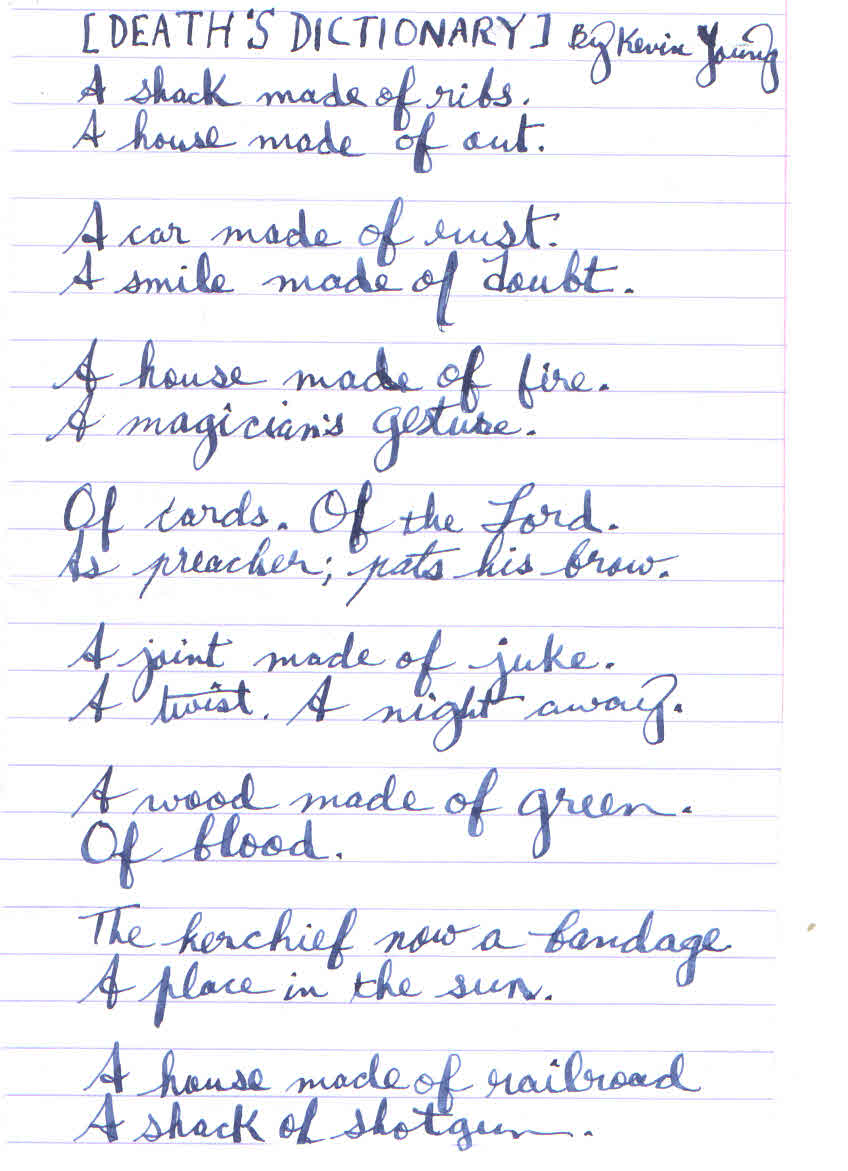 [DEATH'S DICTIONARY] By Kevin Young
A shack made of ribs.
A house made of out.
A car made of rust.
A smile made of doubt.
A house made of fire.
A magician's gesture.
Of cards. Of the Lord.
As preacher; pats his brow.
A joint made of juke.
A twist. A night away.
A wood made of green.
Of blood.
The kerchief now a bandage
A place in the sun.
A house made of railroad
A shack of shotgun.